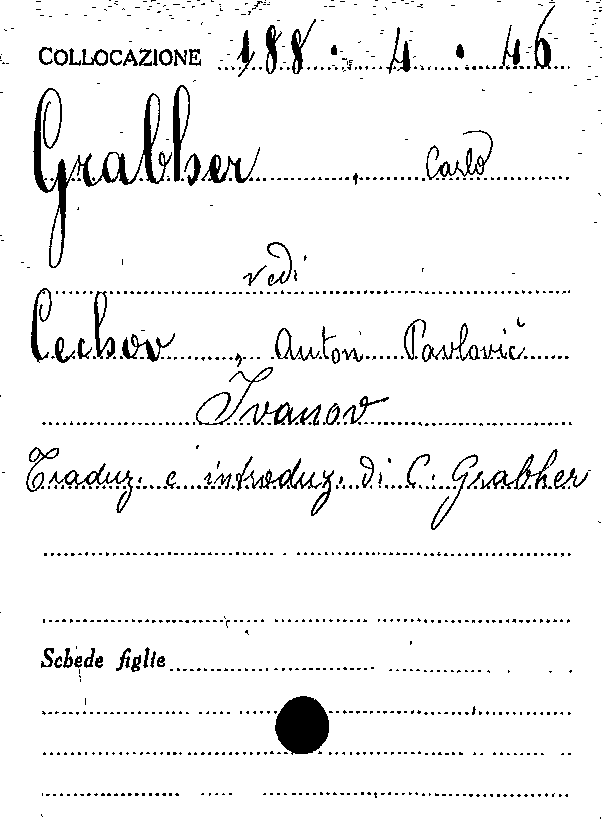 COLLOCAZIONE 188 · 4 · 46
Grabher, Carlo
vedi
Cechov, Anton Pavlovič
Ivanov
Traduz. e introduz. di C. Grabher
Schede figlie